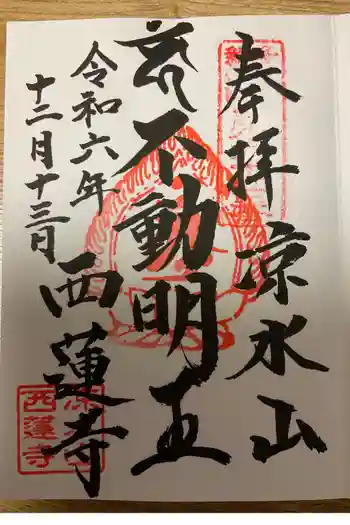 奉拝 涼水山
不動明王
令和六年
十二月十三日
西蓮寺
西蓮寺